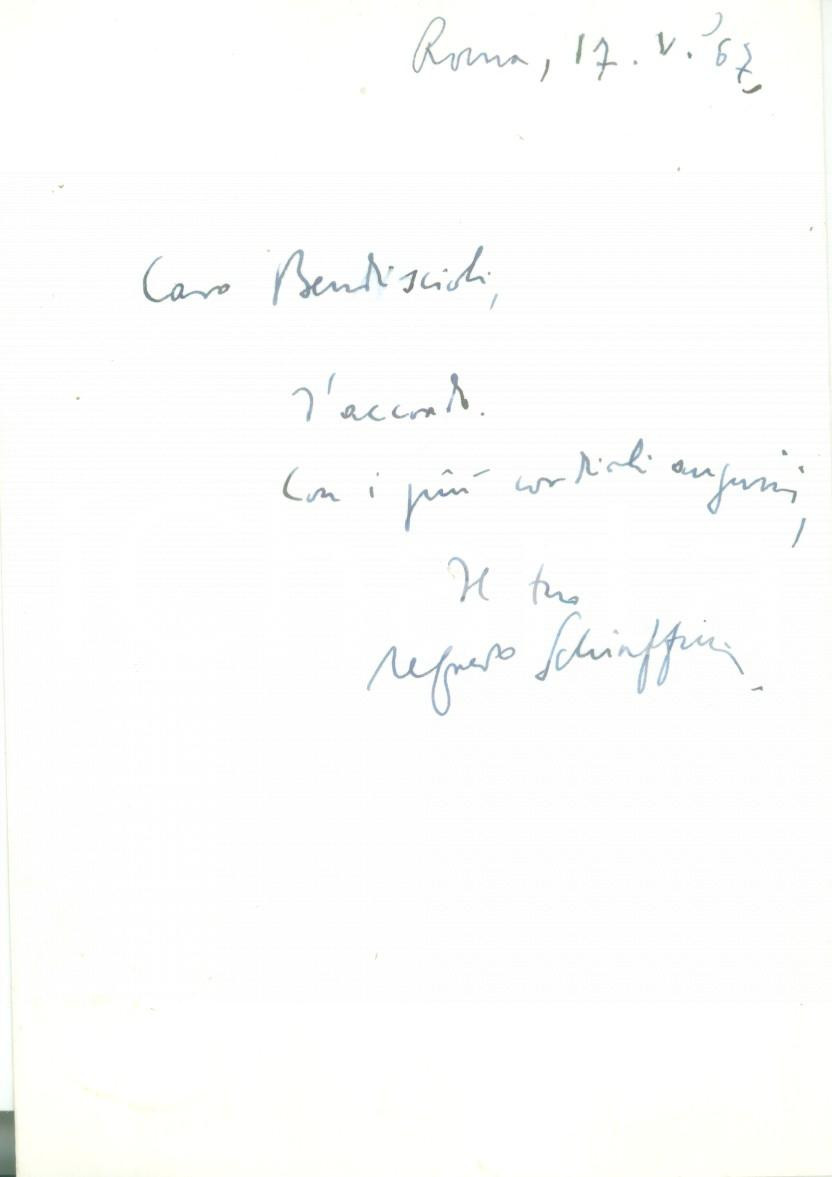 Roma, 17.V.'67
Caro Bendiscioli,
d'accordo.
Con i più cordiali auguri,
Il tuo
Alfredo Schiaffini